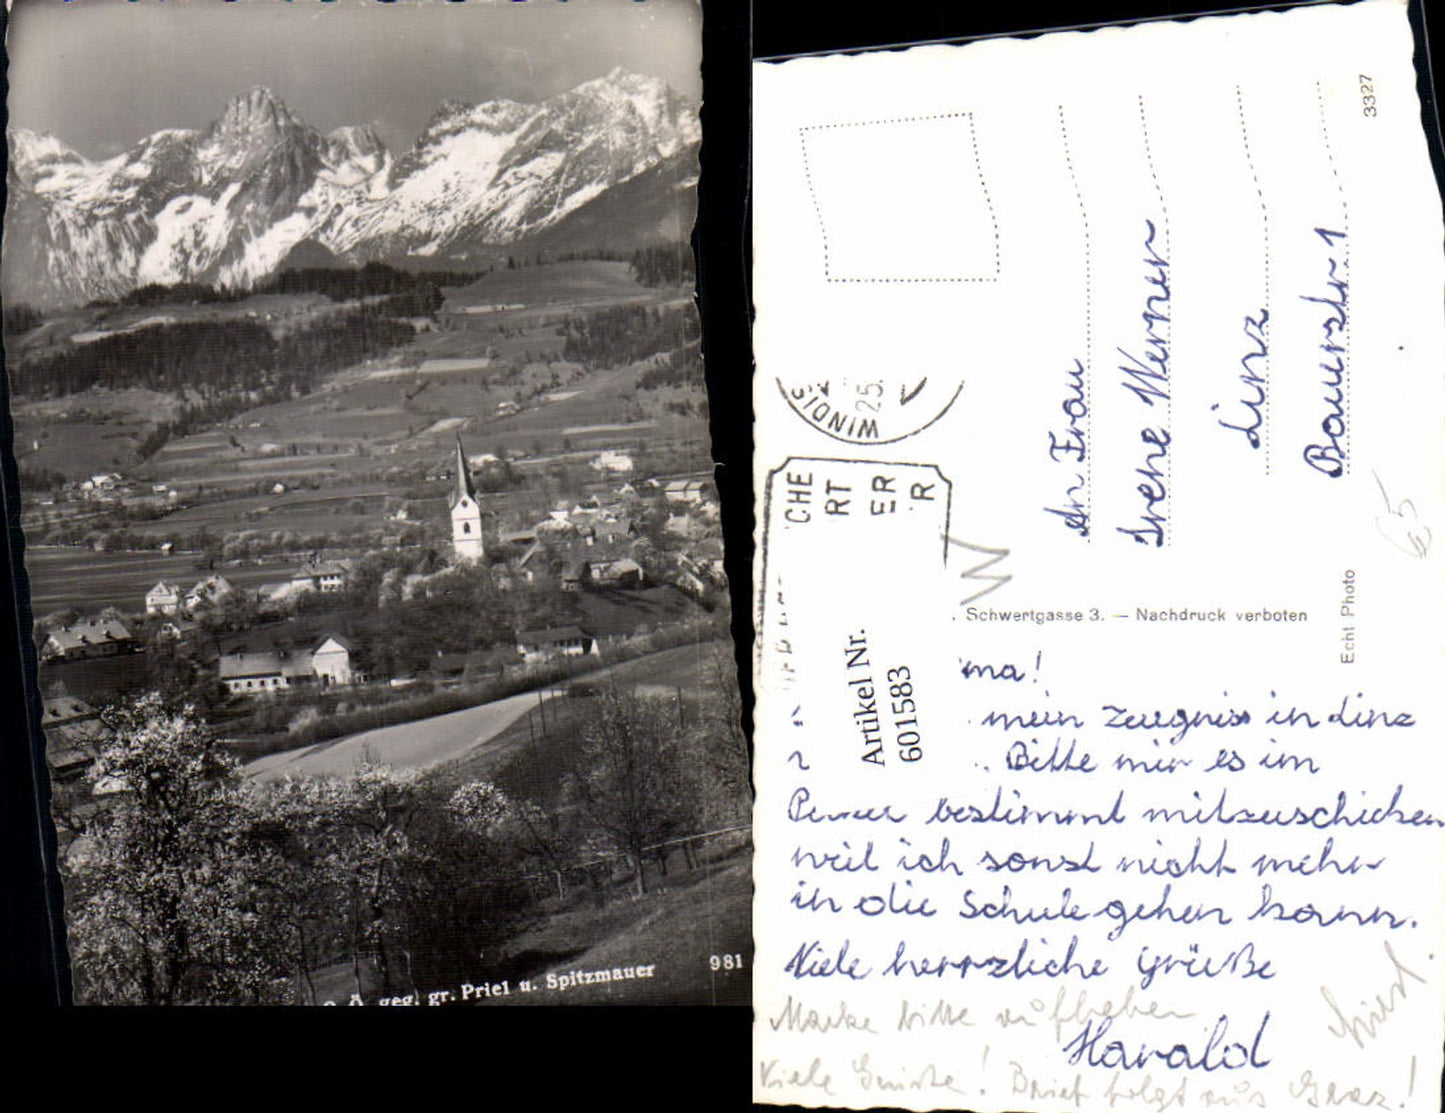 geg. gr. Priel u. Spitzmauer
981
3327
WINDIS
25.
CHE
RT
ER
R
An Frau
Irene Werner
Linz
Bauerstr. 1
65
W
. Schwertgasse 3. — Nachdruck verboten
Echt Photo
Artikel Nr.
601583
ma!
mein Zeugnis in Linz
. Bitte mir es im
bestimmt mitzuschicken
weil ich sonst nicht mehr
in die Schule gehen kann.
Viele herrzliche Grüße
Marke bitte aufheben
Harald
Viele Grüße! Brief folgt aus Graz!